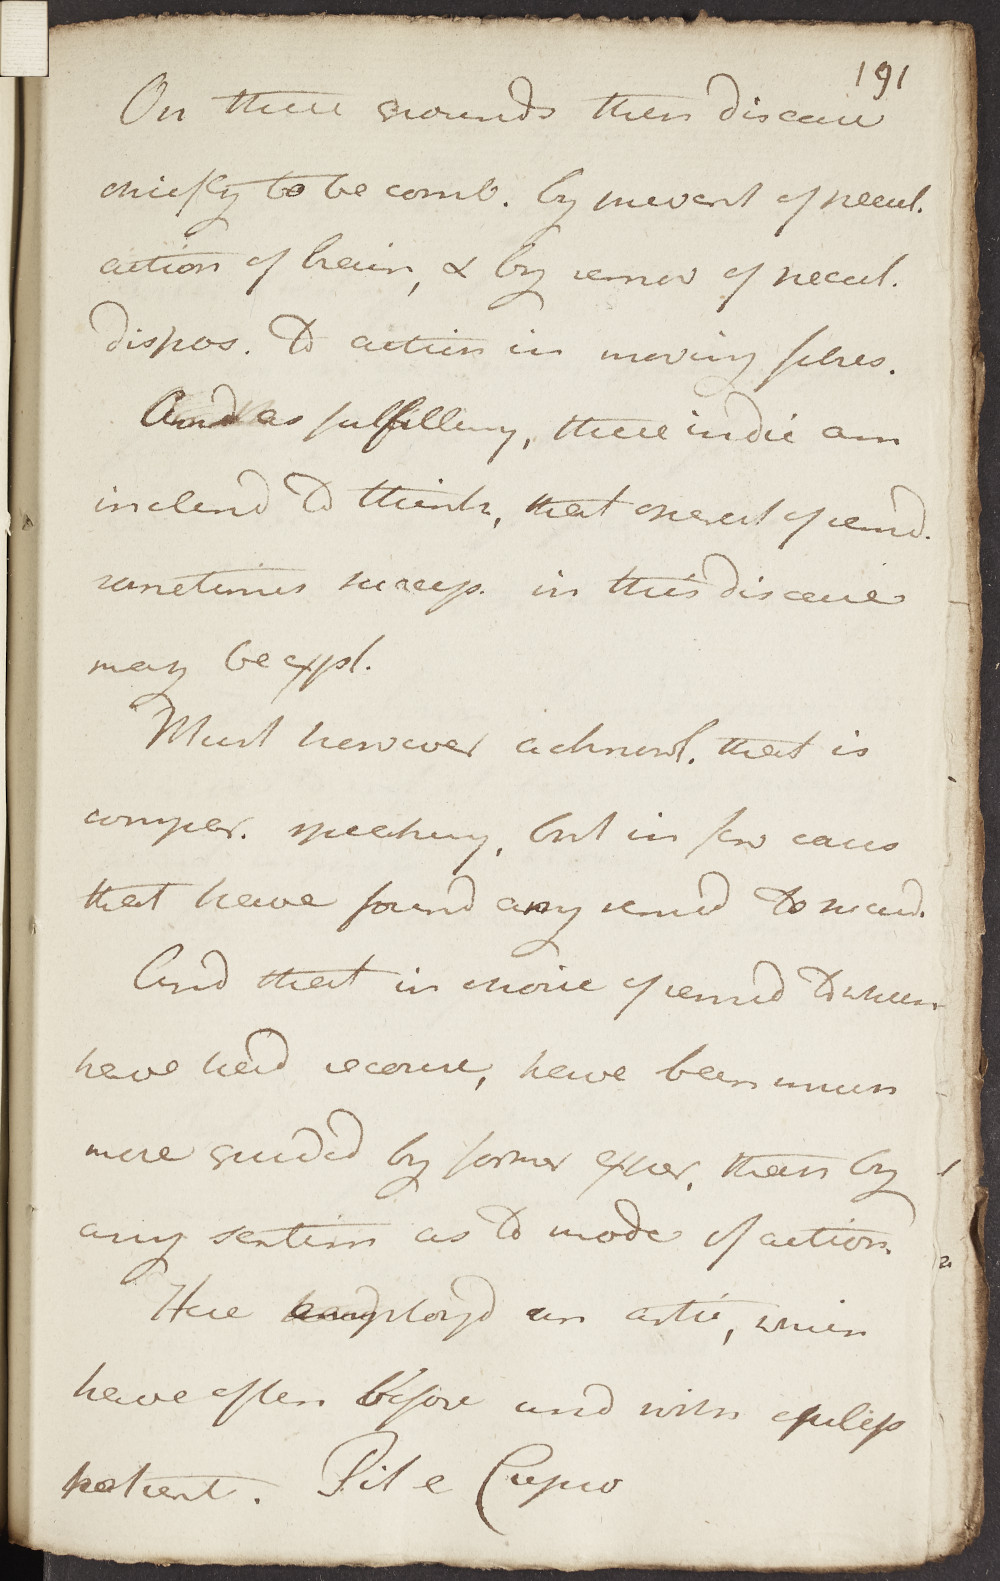 191
On these grounds then disease
chiefly to be comb. by prevent of pecul.
action of brain, & by remov of pecul.
dispos. to action in moving fibres.
And as fulfilling, these indic am
inclend to think, that operat of remd.
sometimes success. in this disease
may be expl.
Must however acknowl. that is
compar. speaking, but in few cases
that have found any remed to succed.
And that in choice of remed to which
have had recourse, have been much
more guided by former exper. than by
any sentim as to mode of action.
Here employd an artic, which
have often before usd with epilep
patient. Pil e Cupro